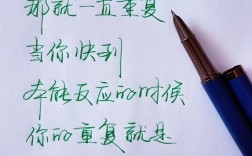 那就一直重复
当你快到
本能反应的时候
你的重复就是